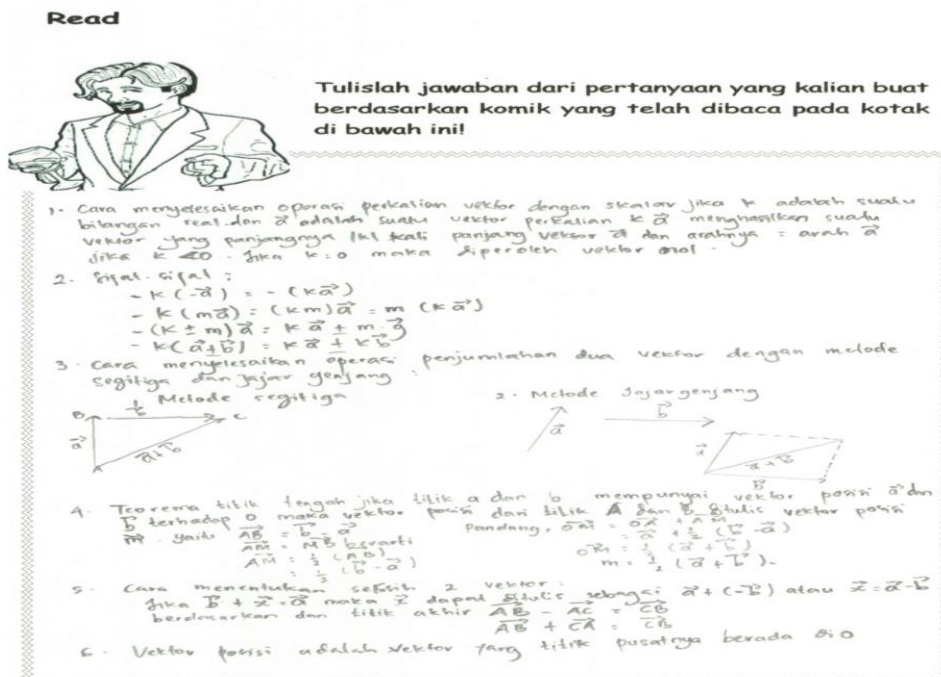 Read
Tulislah jawaban dari pertanyaan yang kalian buat
berdasarkan komik yang telah dibaca pada kotak
di bawah ini!
1. Cara menyelesaikan operasi perkalian vektor dengan skalar jika k adalah suatu
bilangan real dan a⃗ adalah suatu vektor perkalian k a⃗ menghasilkan suatu
vektor yang panjangnya |k| kali panjang vektor a⃗ dan arahnya = arah a⃗
jika k <0 . Jika k=0 maka diperoleh vektor nol.
2. Sifat-sifat :
- k(-a⃗) = -(ka⃗)
- k(ma⃗) = (km)a⃗ = m (k a⃗)
- (k ± m)a⃗ = k a⃗ ± m.a⃗
- k(a⃗±b⃗) = k a⃗ ± k b⃗
3. Cara menyelesaikan operasi penjumlahan dua vektor dengan metode
segitiga dan jajar genjang :
1. Metode segitiga
B b⃗ C
a⃗
A a⃗+b⃗
2. Metode Jajar genjang
a⃗ b⃗
a⃗ a⃗+b⃗
b⃗
4. Teorema titik tengah jika titik a dan b mempunyai vektor posisi a⃗ dan
b⃗ terhadap O maka vektor posisi dari titik A dan B ditulis vektor posisi
m⃗. Yaitu AB = b⃗ - a⃗
AM = MB berarti
AM = ½ (AB)
= ½ (b⃗ - a⃗)
Pandang, OM = OA + AM
= a⃗ + ½ (b⃗ - a⃗)
OM = ½ (a⃗ + b⃗)
m = ½ (a⃗ + b⃗).
5. Cara menentukan selisih 2 vektor :
Jika b⃗ + x⃗ = a⃗ maka x⃗ dapat ditulis sebagai a⃗ + (-b⃗) atau x⃗ = a⃗ - b⃗
berdasarkan dan titik akhir AB - AC = CB
AB + CA = CB
6. Vektor posisi adalah vektor yang titik pusatnya berada di O